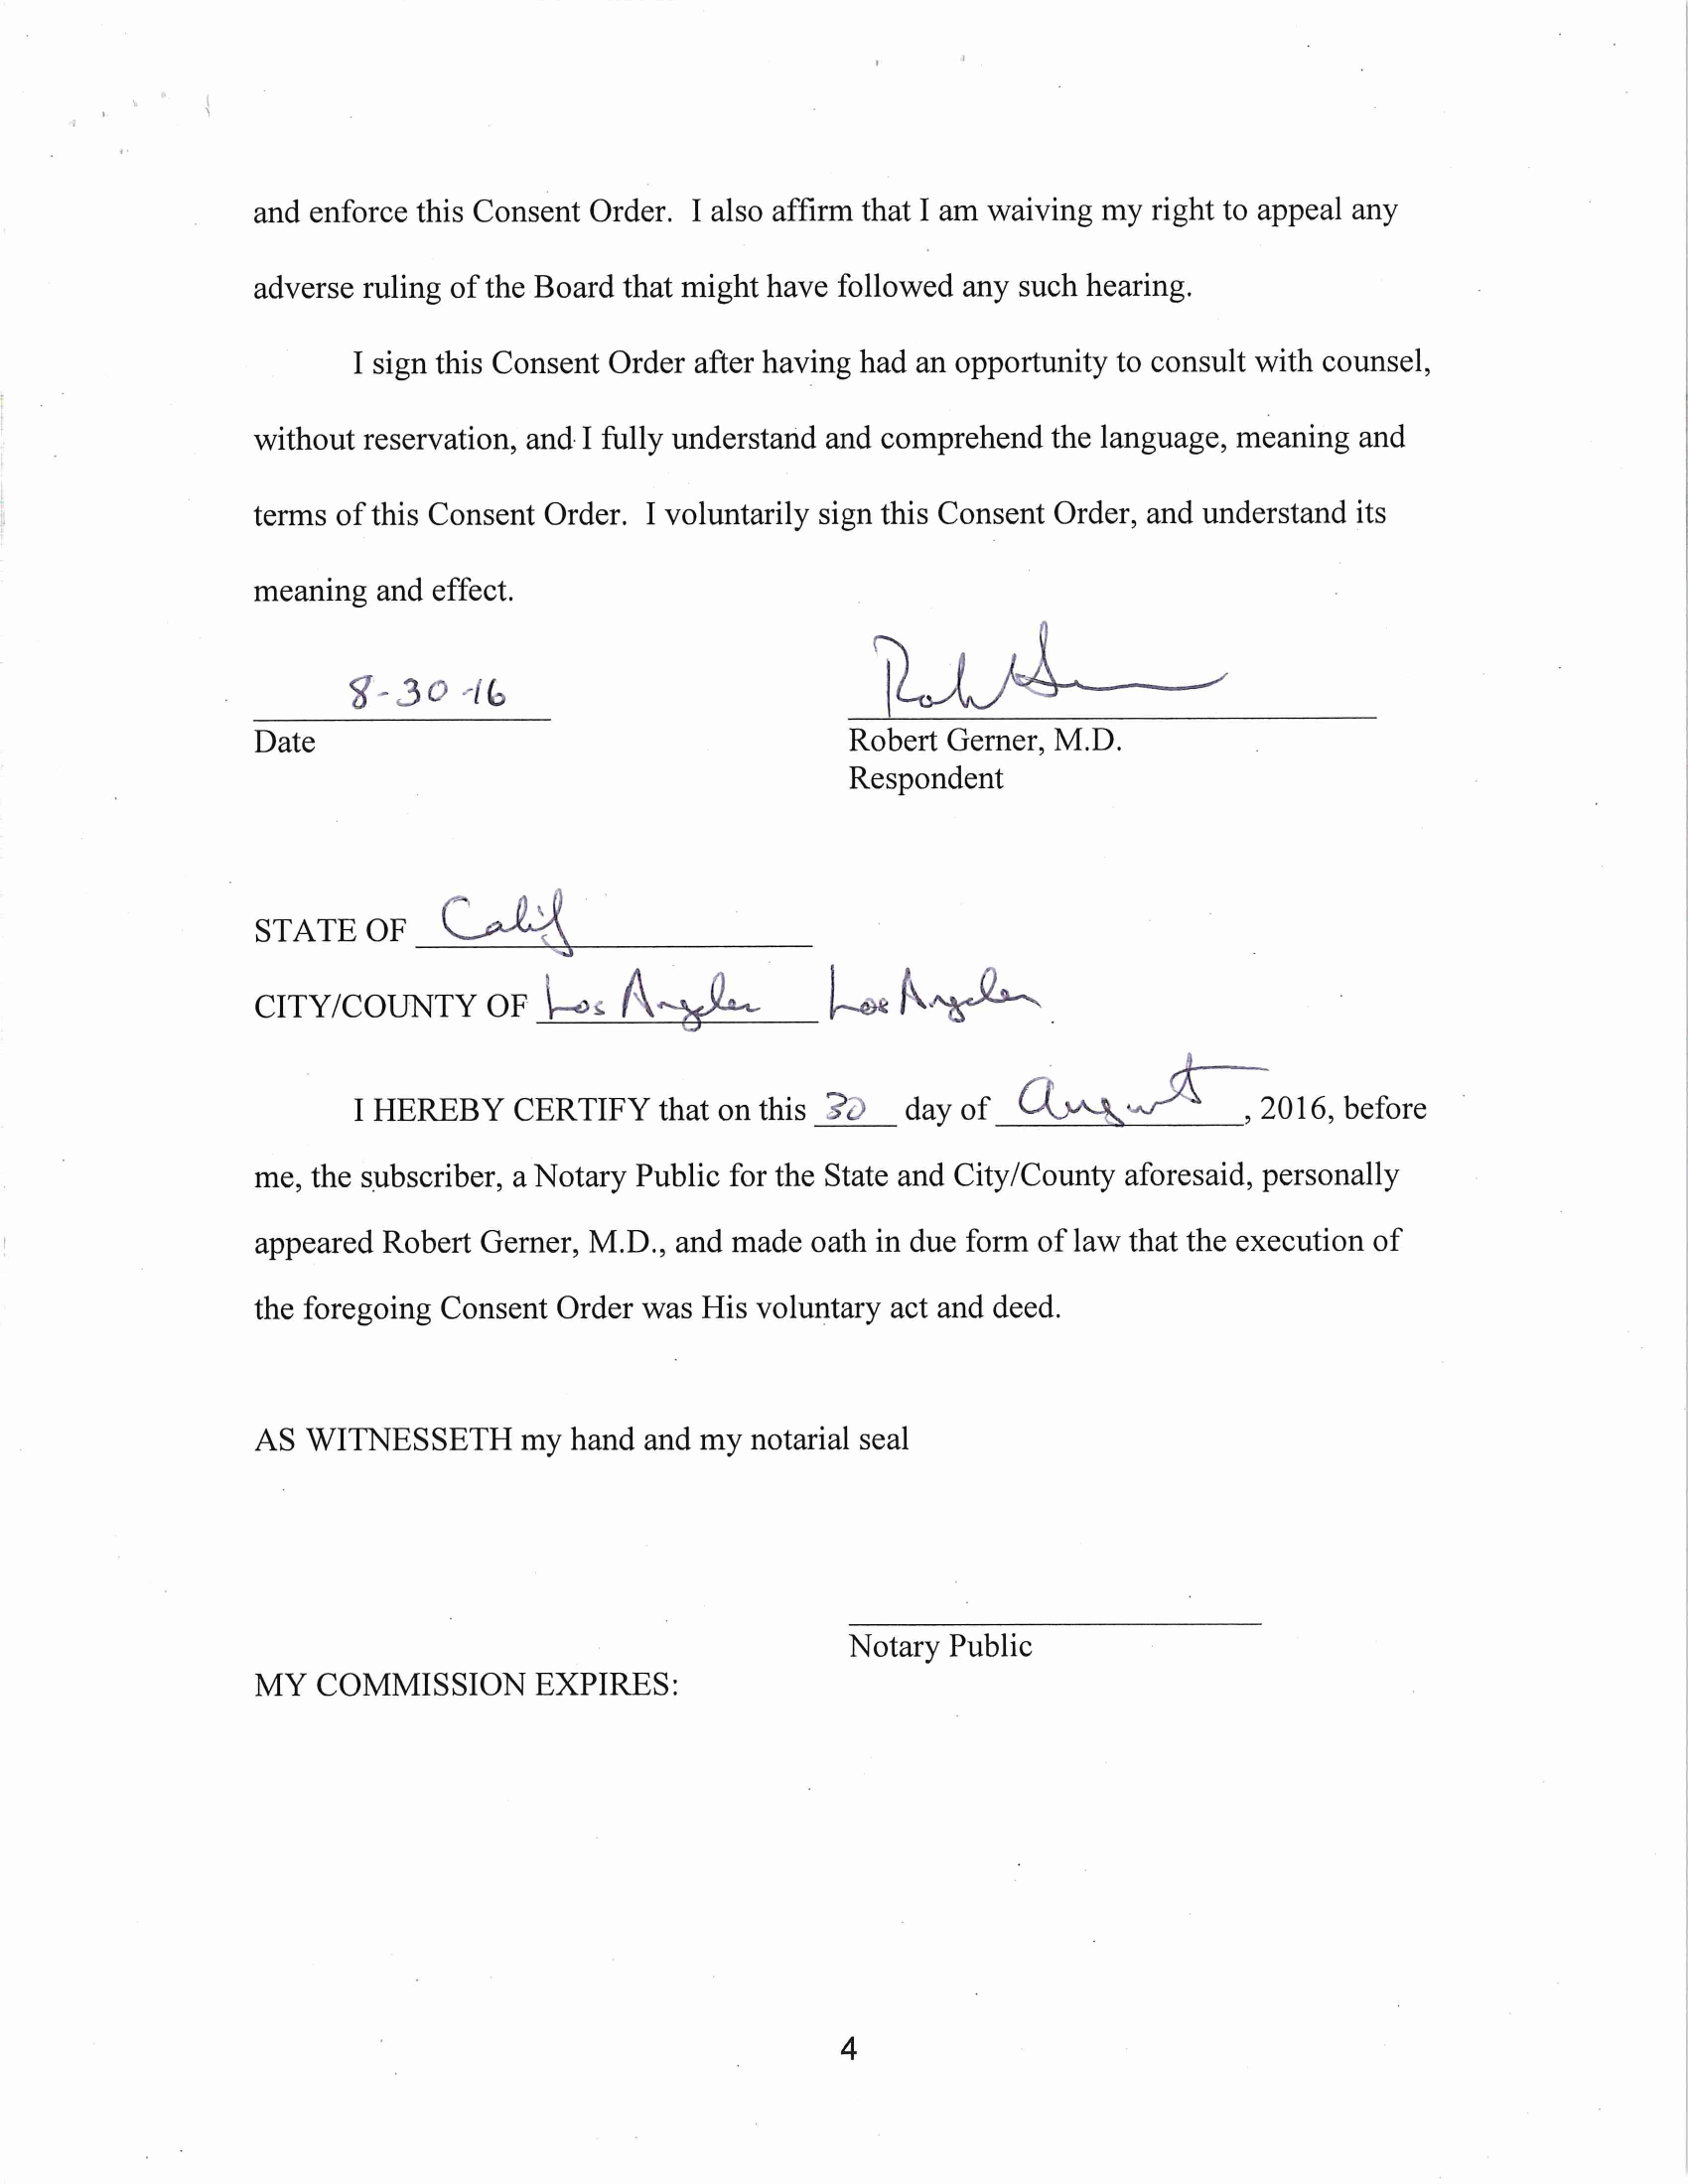 and enforce this Consent Order. I also affirm that I am waiving my right to appeal any
adverse ruling of the Board that might have followed any such hearing.
I sign this Consent Order after having had an opportunity to consult with counsel,
without reservation, and I fully understand and comprehend the language, meaning and
terms of this Consent Order. I voluntarily sign this Consent Order, and understand its
meaning and effect.
8-30-16
Date
Robert Gerner, M.D.
Respondent
STATE OF Calif
CITY/COUNTY OF Los Angeles Los Angeles
I HEREBY CERTIFY that on this 30 day of August, 2016, before
me, the subscriber, a Notary Public for the State and City/County aforesaid, personally
appeared Robert Gerner, M.D., and made oath in due form of law that the execution of
the foregoing Consent Order was His voluntary act and deed.
AS WITNESSETH my hand and my notarial seal
Notary Public
MY COMMISSION EXPIRES:
4